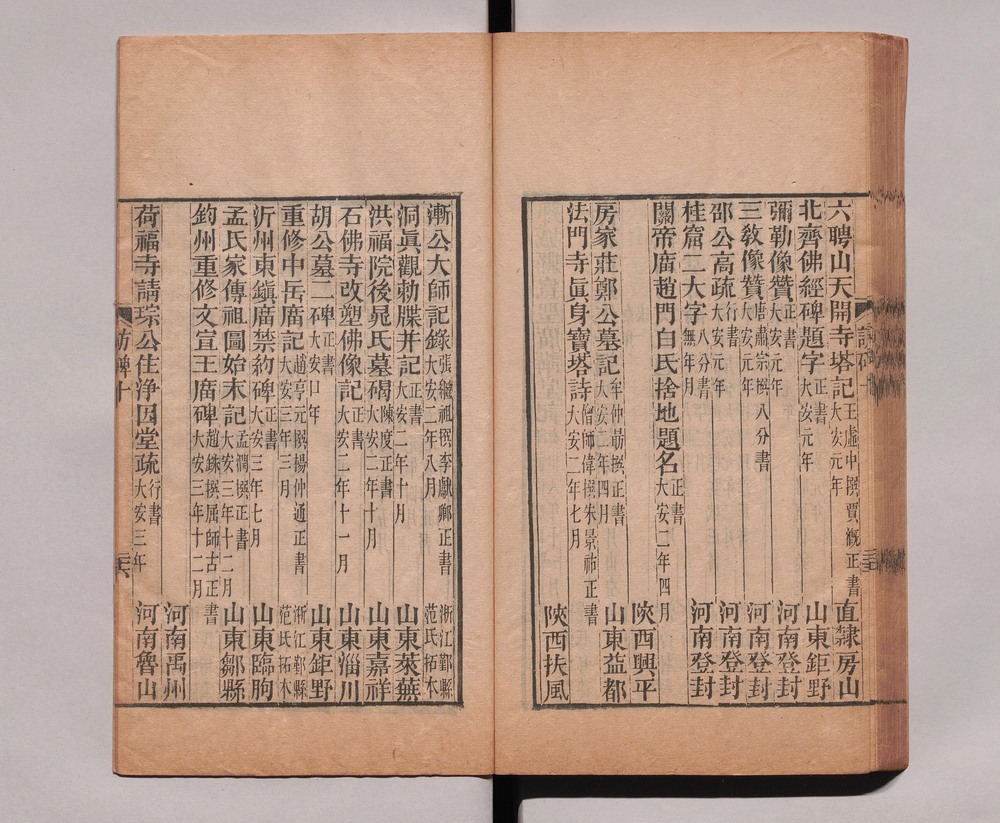 六聘山天開寺塔記 王虛中撰賈溉正書 大安元年 直隸房山
北齊佛經碑題字 正書 大安元年 山東鉅野
彌勒像贊 正書 大安元年 河南登封
三敎像贊 唐肅宗撰八分書 大安元年 河南登封
邵公高疏 行書 大安元年 河南登封
桂窟二大字 八分書 無年月 河南登封
關帝廟趙門白氏捨地題名 正書 大安二年四月
陝西興平
房家莊鄭公墓記 牟仲勗撰正書 大安二年四月 山東益都
法門寺眞身寶塔詩 僧師偉撰朱景祐正書 大安二年七月
陝西扶風
漸公大師記錄 張繼祖撰李獻卿正書 大安二年八月 浙江鄞縣范氏拓本
洞眞觀勅牒并記 正書 大安二年十月 山東萊蕪
洪福院後晁氏墓碣 陳度正書 大安二年十月 山東嘉祥
石佛寺改塑佛像記 正書 大安二年十一月 山東淄川
胡公墓二碑 正書 大安口年 山東鉅野
重修中岳廟記 趙亨元撰楊仲通正書 大安三年三月 浙江鄞縣范氏拓本
沂州東鎭廟禁約碑 正書 大安三年七月 山東臨朐
孟氏家傳祖圖始末記 孟潤撰正書 大安三年十二月 山東鄒縣
鈞州重修文宣王廟碑 趙銖撰屈師古正書 大安三年十二月
河南禹州
荷福寺請琮公住淨因堂疏 行書 大安三年 河南魯山
訪碑十